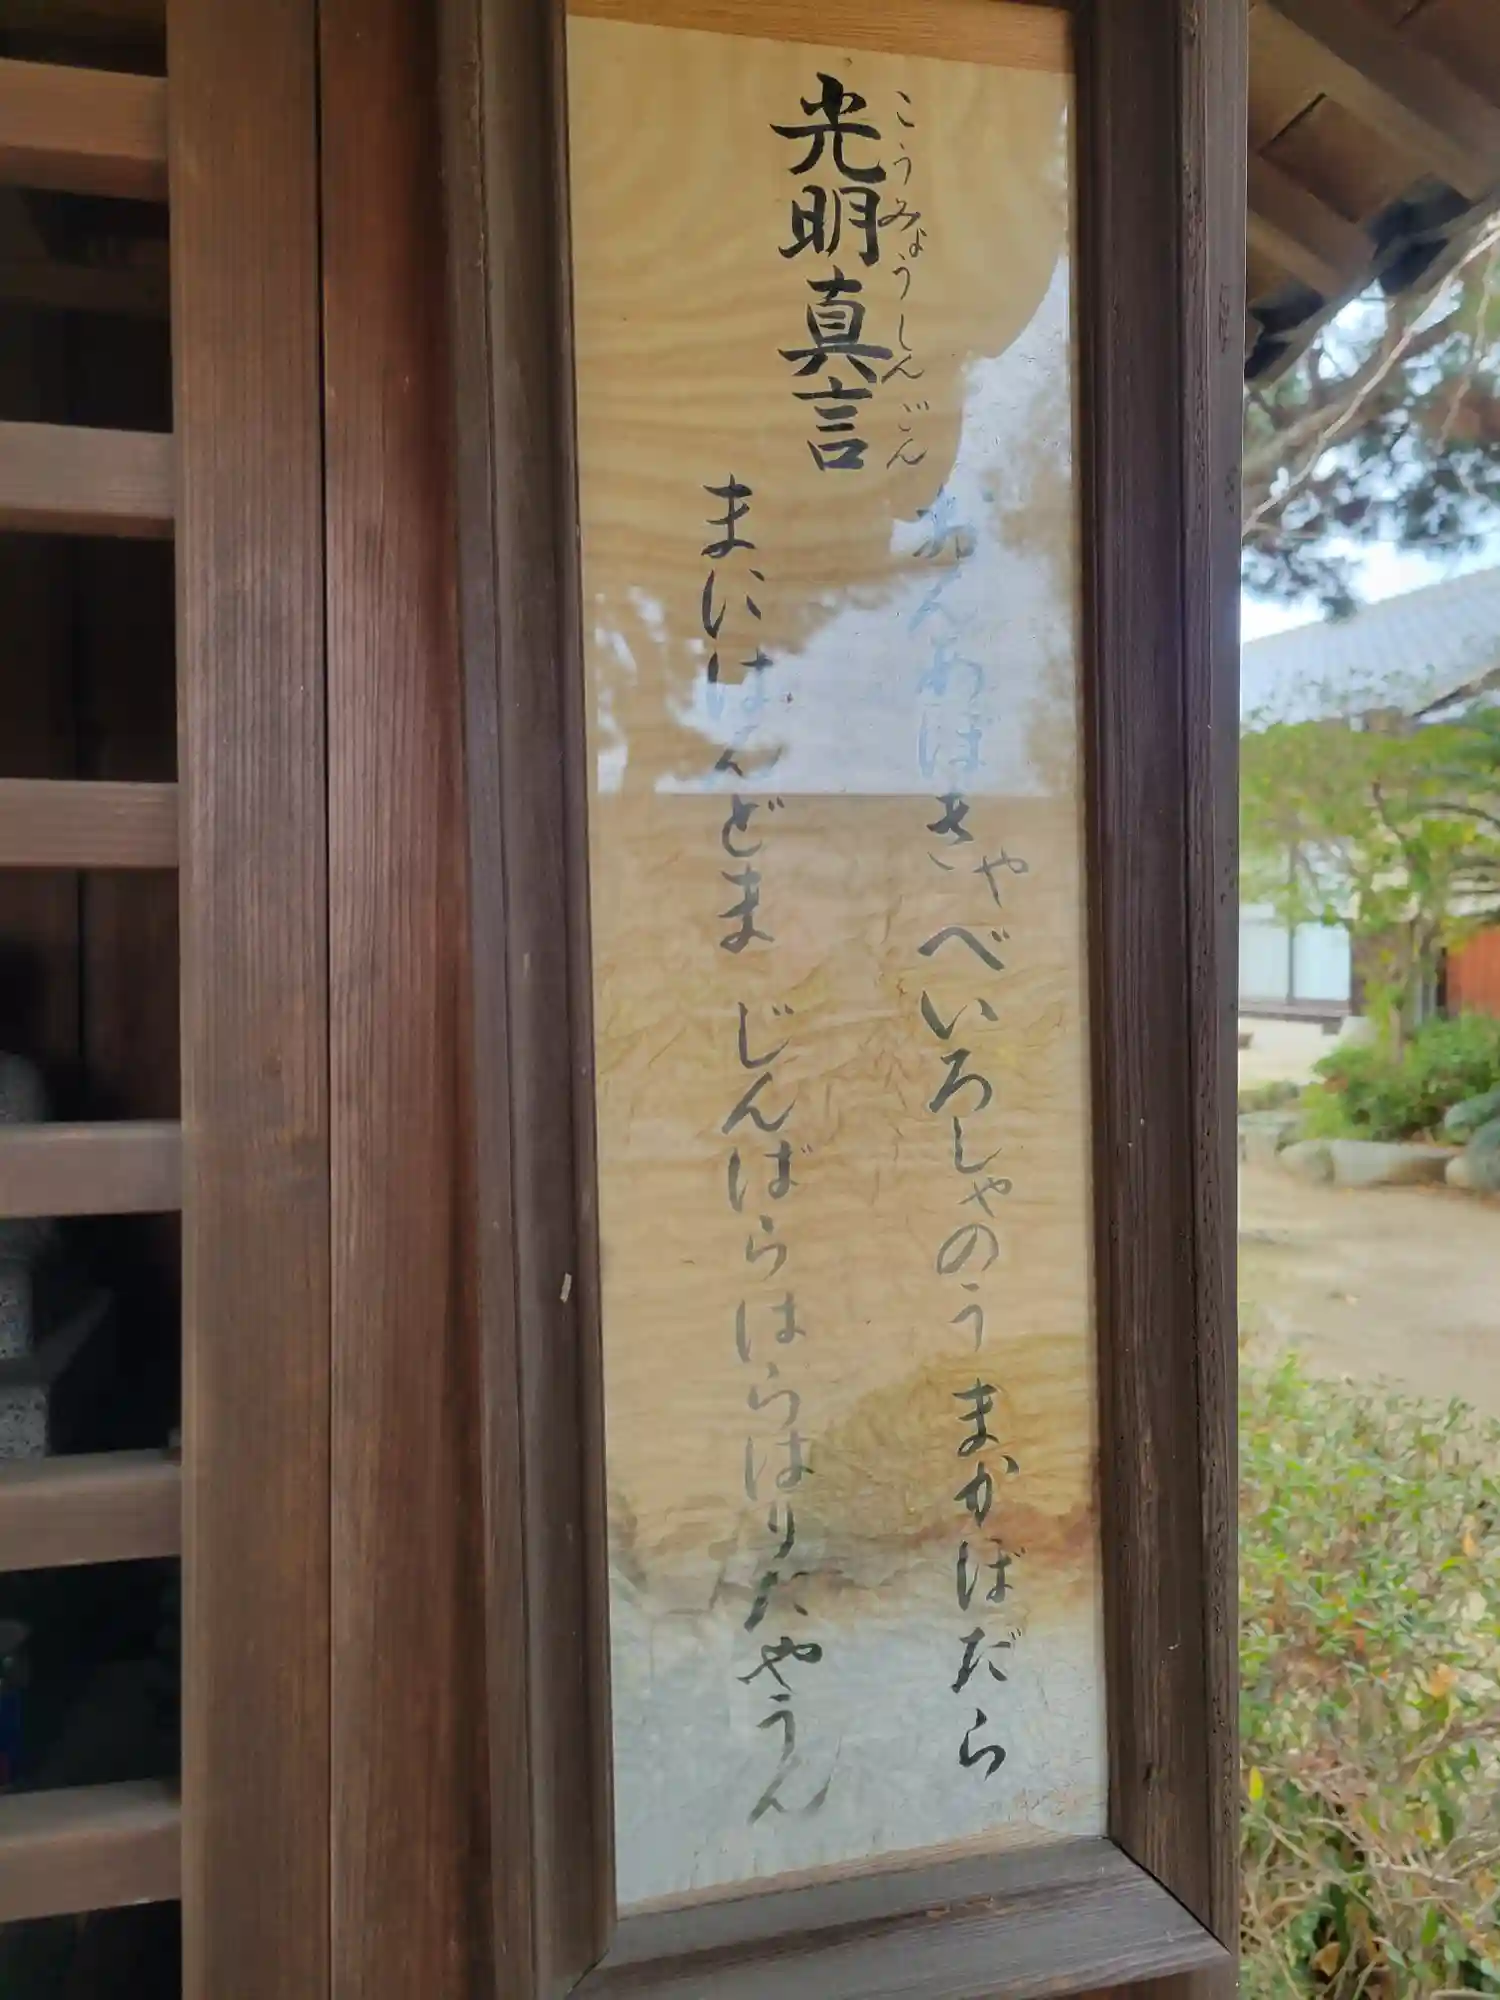 光明真言
こうみょうしんごん
おんあぼきゃべいろしゃのう まかぼだら
まにはんどま じんばらはらはりたやうん